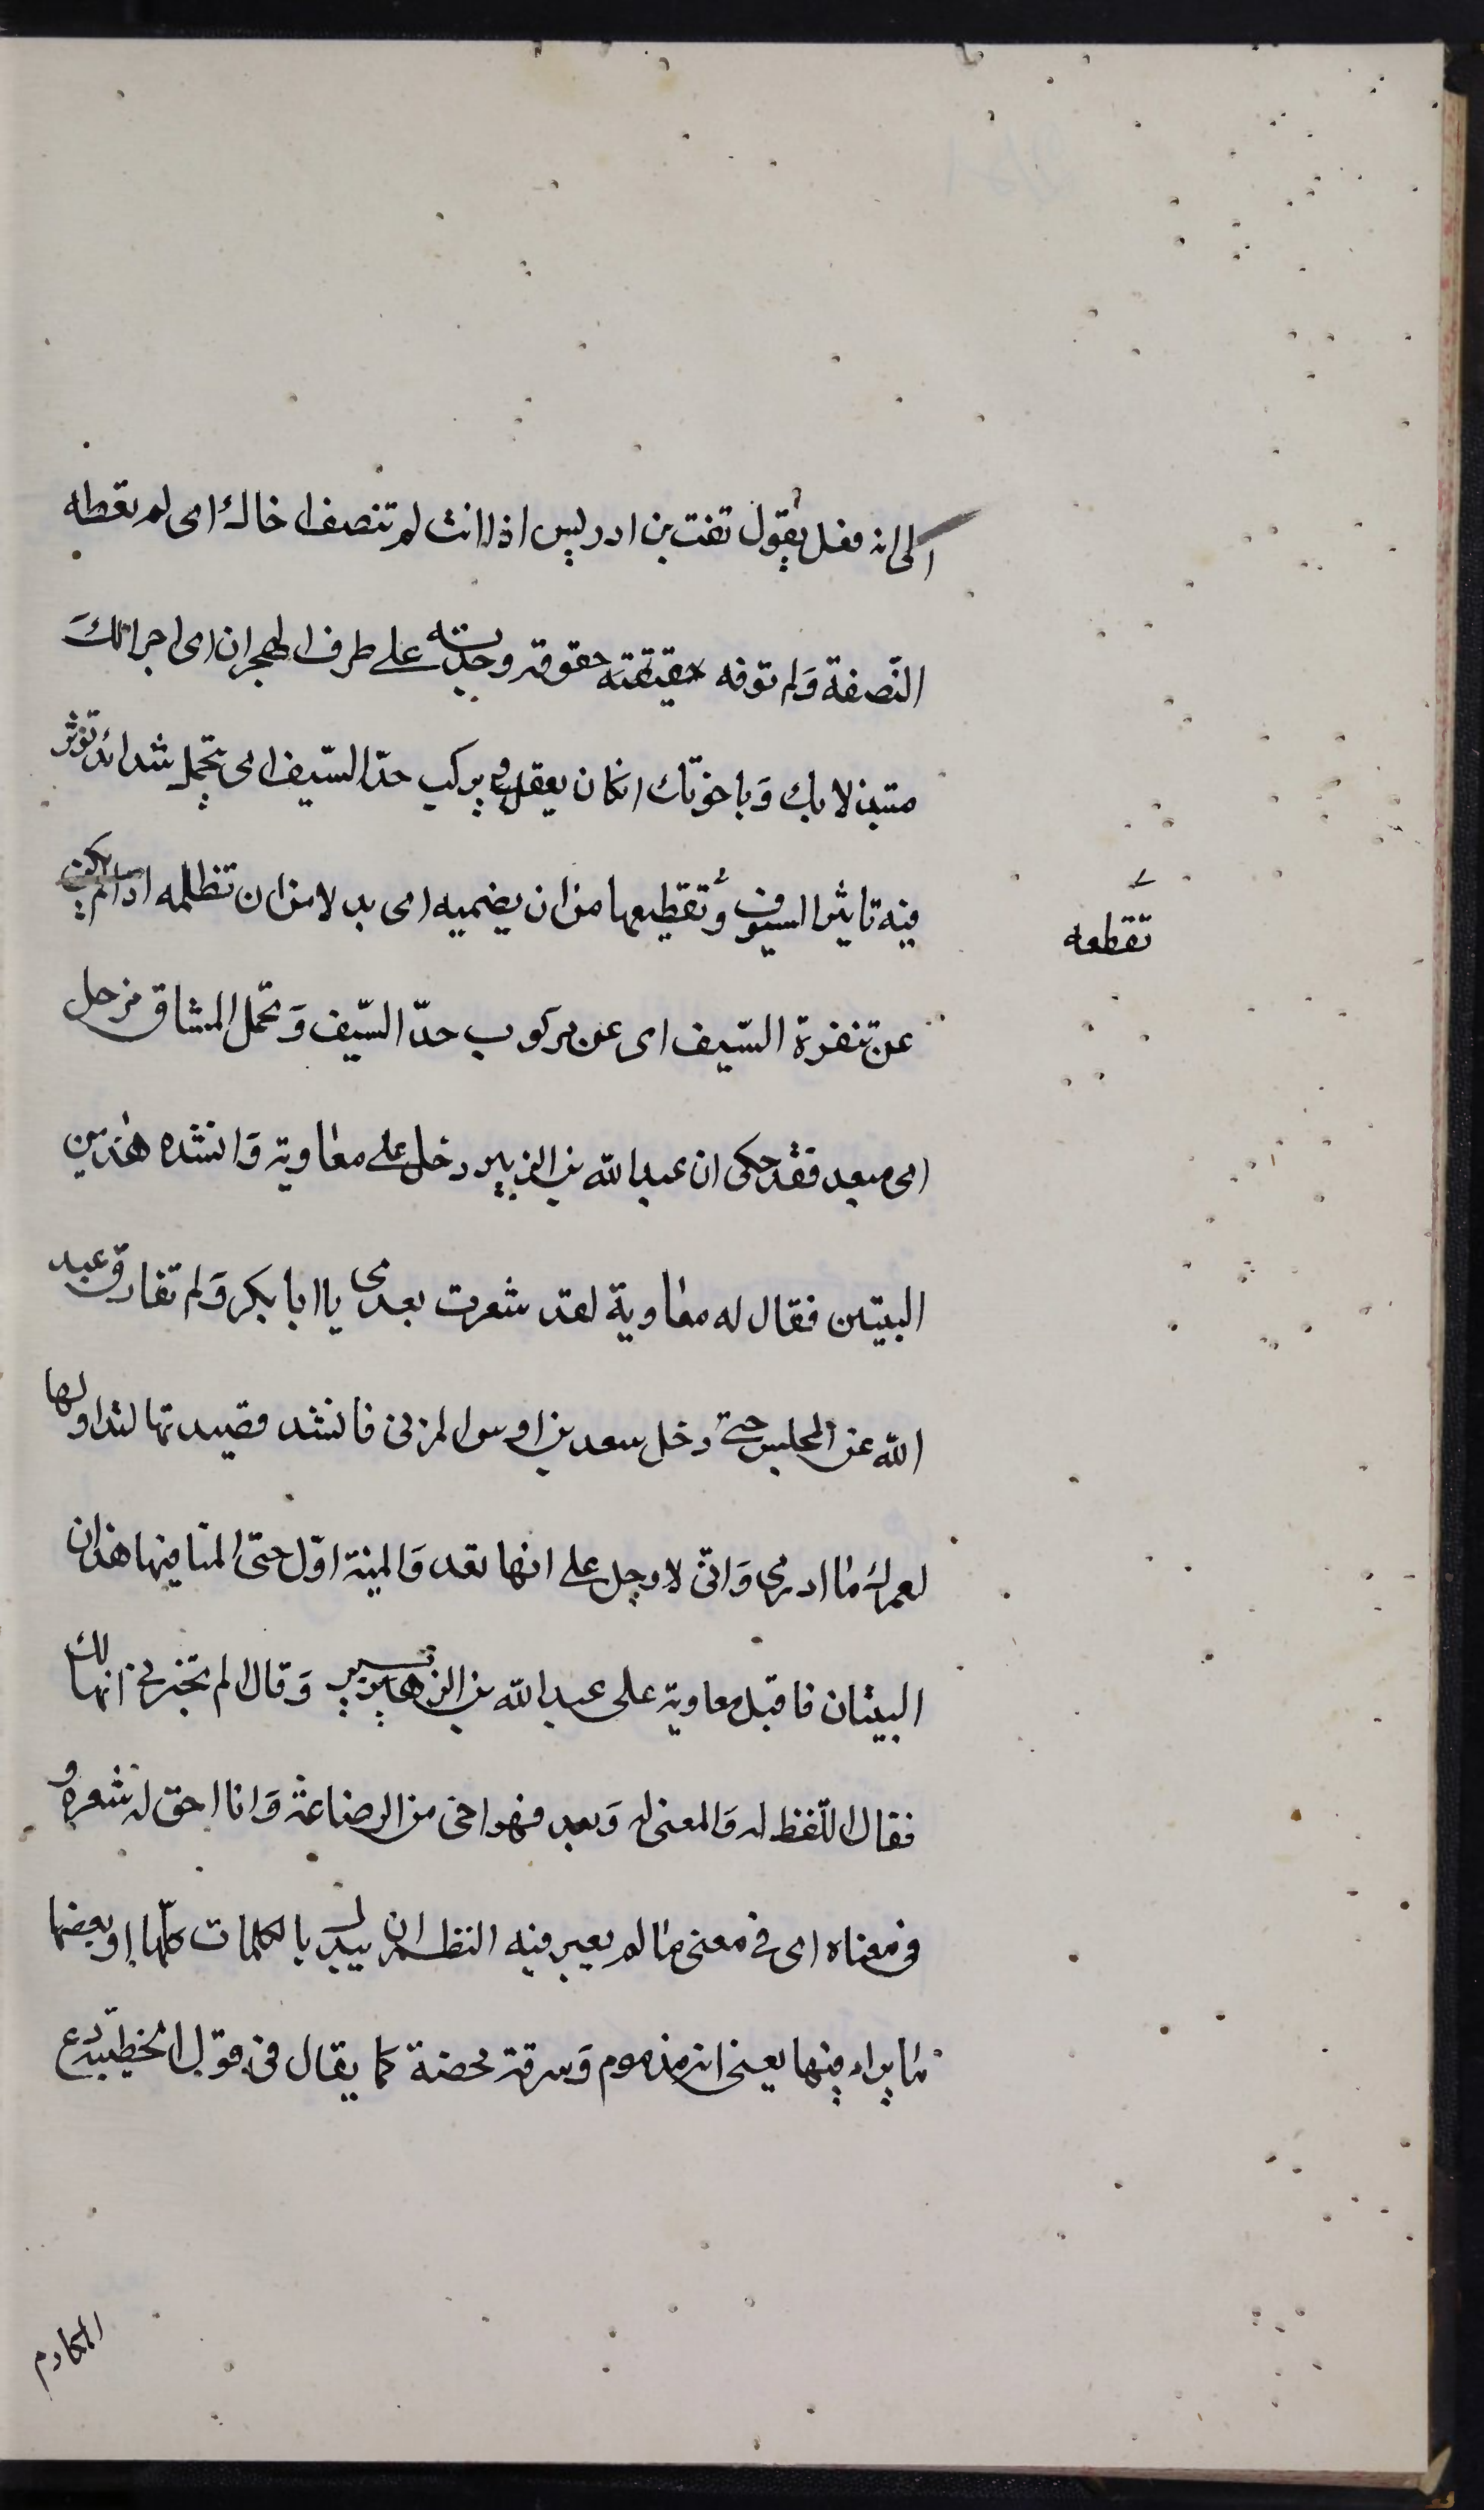 الى انه فعل يقول تفت بن ادريس اذا انت لم تنصف اخاك اى لم تعطه
النّصفة وَلم توفه حقيقته حقوقه وجدته على طرف الهجران اى اجرا لك
متبذلا بك وَباخوتك انكان يعقل و يركب حدّ السّيف اى يتحمل شدائد تؤثر
فيه تاثير السيوف وَ تقطيعها من ان يضميه اى بدلا من ان تظلمه اذا لم يكن
تقطعه
عن تنفرة السّيف اى عن ركوب حدّ السّيف وَتحمل المشاق مزحل
اى مبعد فقد حكى ان عبد الله بن الزبير دخل على معاوية وَانشده هذين
البيتين فقال له معاوية لقد شعرت بعدى يا ابا بكر وَلم تفارق عبد
الله عن المجلس حتى دخل سعد بن اوس المزنى فانشد قصيدتها لتداولها
لعمرك ما ادرى وَانّى لاوجل على انها تعد وَالمينة اوّل حتى المّنا فيها هذان
البيتان فاقبل معاوية على عبد الله بن الزبير وَقال الم تخبرنى انها لك
فقال اللّفظ له وَالمعنى له وَبعد فهو اخى من الرضاعة وَانا احق له شعره و
فى معناه اى فى معنى ما لم يعير فيه النظم ان يبدل بالكلمات كلّها او بعضها
ما يراد فيها يعنى انه مذموم وَسرقة محضة كما يقال فى قول الخطيئة دع
المكارم